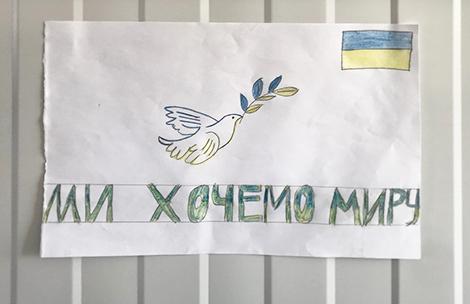 МИ ХОЧЕМО МИРУ